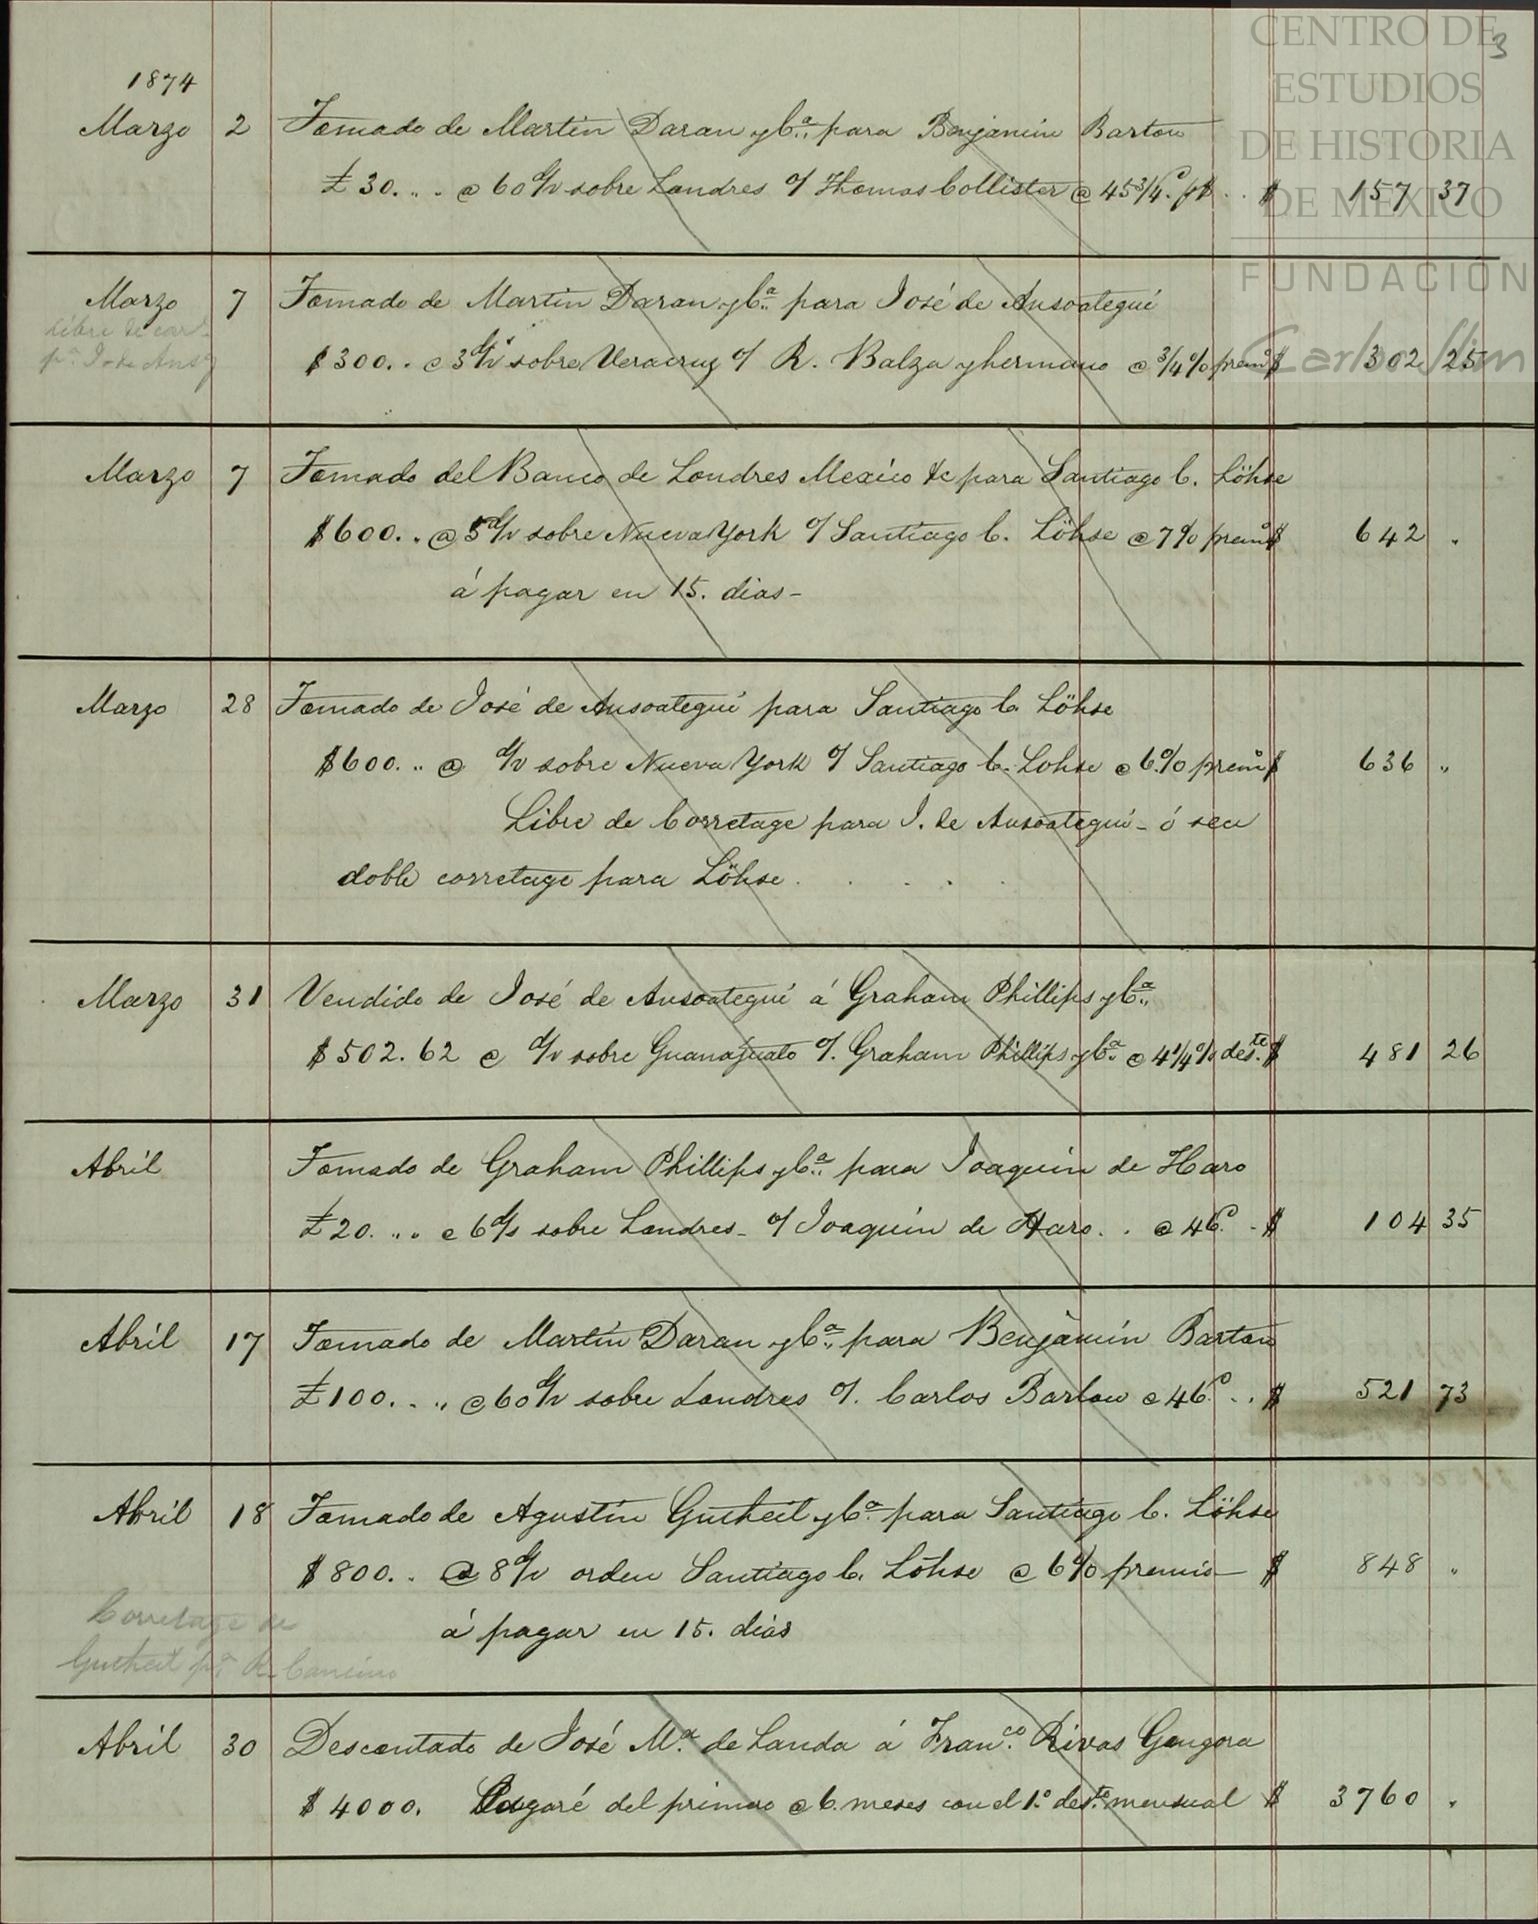 CENTRO DE
ESTUDIOS
DE HISTORIA
DE MÉXICO
FUNDACIÓN
Carlos Slim
3
1874
Marzo 2 Tomado de Martin Daran y Cª para Benjamin Barton
£ 30. .. @ 60 d/v sobre Londres o/ Thomas Collister @ 45 3/4 p. $ . . $ 157 37
Marzo 7 Tomado de Martin Daran y Cª para José de Ansoategui
Libre de cor
pª J. de Ansg
$ 300. . @ 3 d/v sobre Veracruz o/ R. Balza y hermano @ 3/4 % premº $ 302 25
Marzo 7 Tomado del Banco de Londres Mexico &c para Santiago C. Löhse
$ 600. . @ 3 d/v sobre Nueva York o/ Santiago C. Löhse @ 7 % premº $ 642 .
á pagar en 15. dias -
Marzo 28 Tomado de José de Ansoategui para Santiago C. Löhse
$ 600. .. @ d/v sobre Nueva York o/ Santiago C. Lohse @ 6. % premº $ 636 "
Libre de Corretage para J. de Ansoategui - ó sea
doble corretage para Löhse . . . .
Marzo 31 Vendido de José de Ansoategui á Graham Phillips y Cª
$ 502. 62 @ d/v sobre Guanajuato o/. Graham Phillips y Cª @ 4 1/4 % des.te $ 481 26
Abril Tomado de Graham Phillips y Cª para Joaquin de Haro
£ 20. .. @ 6 d/s sobre Londres - o/ Joaquin de Haro. . @ 46 p. - $ 104 35
Abril 17 Tomado de Martin Daran y Cª para Benjamin Barton
£ 100. . .. @ 60 d/v sobre Londres o/. Carlos Barlow @ 46 p. . . $ 521 73
Abril 18 Tomado de Agustin Gutheil y Cª para Santiago C. Löhse
$ 800. . @ 8 d/v orden Santiago C. Löhse @ 6 % premio — $ 848 "
á pagar en 15. dias
Corretage de
Gutheil pª R. Cancino
Abril 30 Descontado de José Mª de Landa á Fran.co Rivas Gongora
$ 4000. Pagaré del primero @ 6. meses con el 1.º des.to mensual $ 3760 .